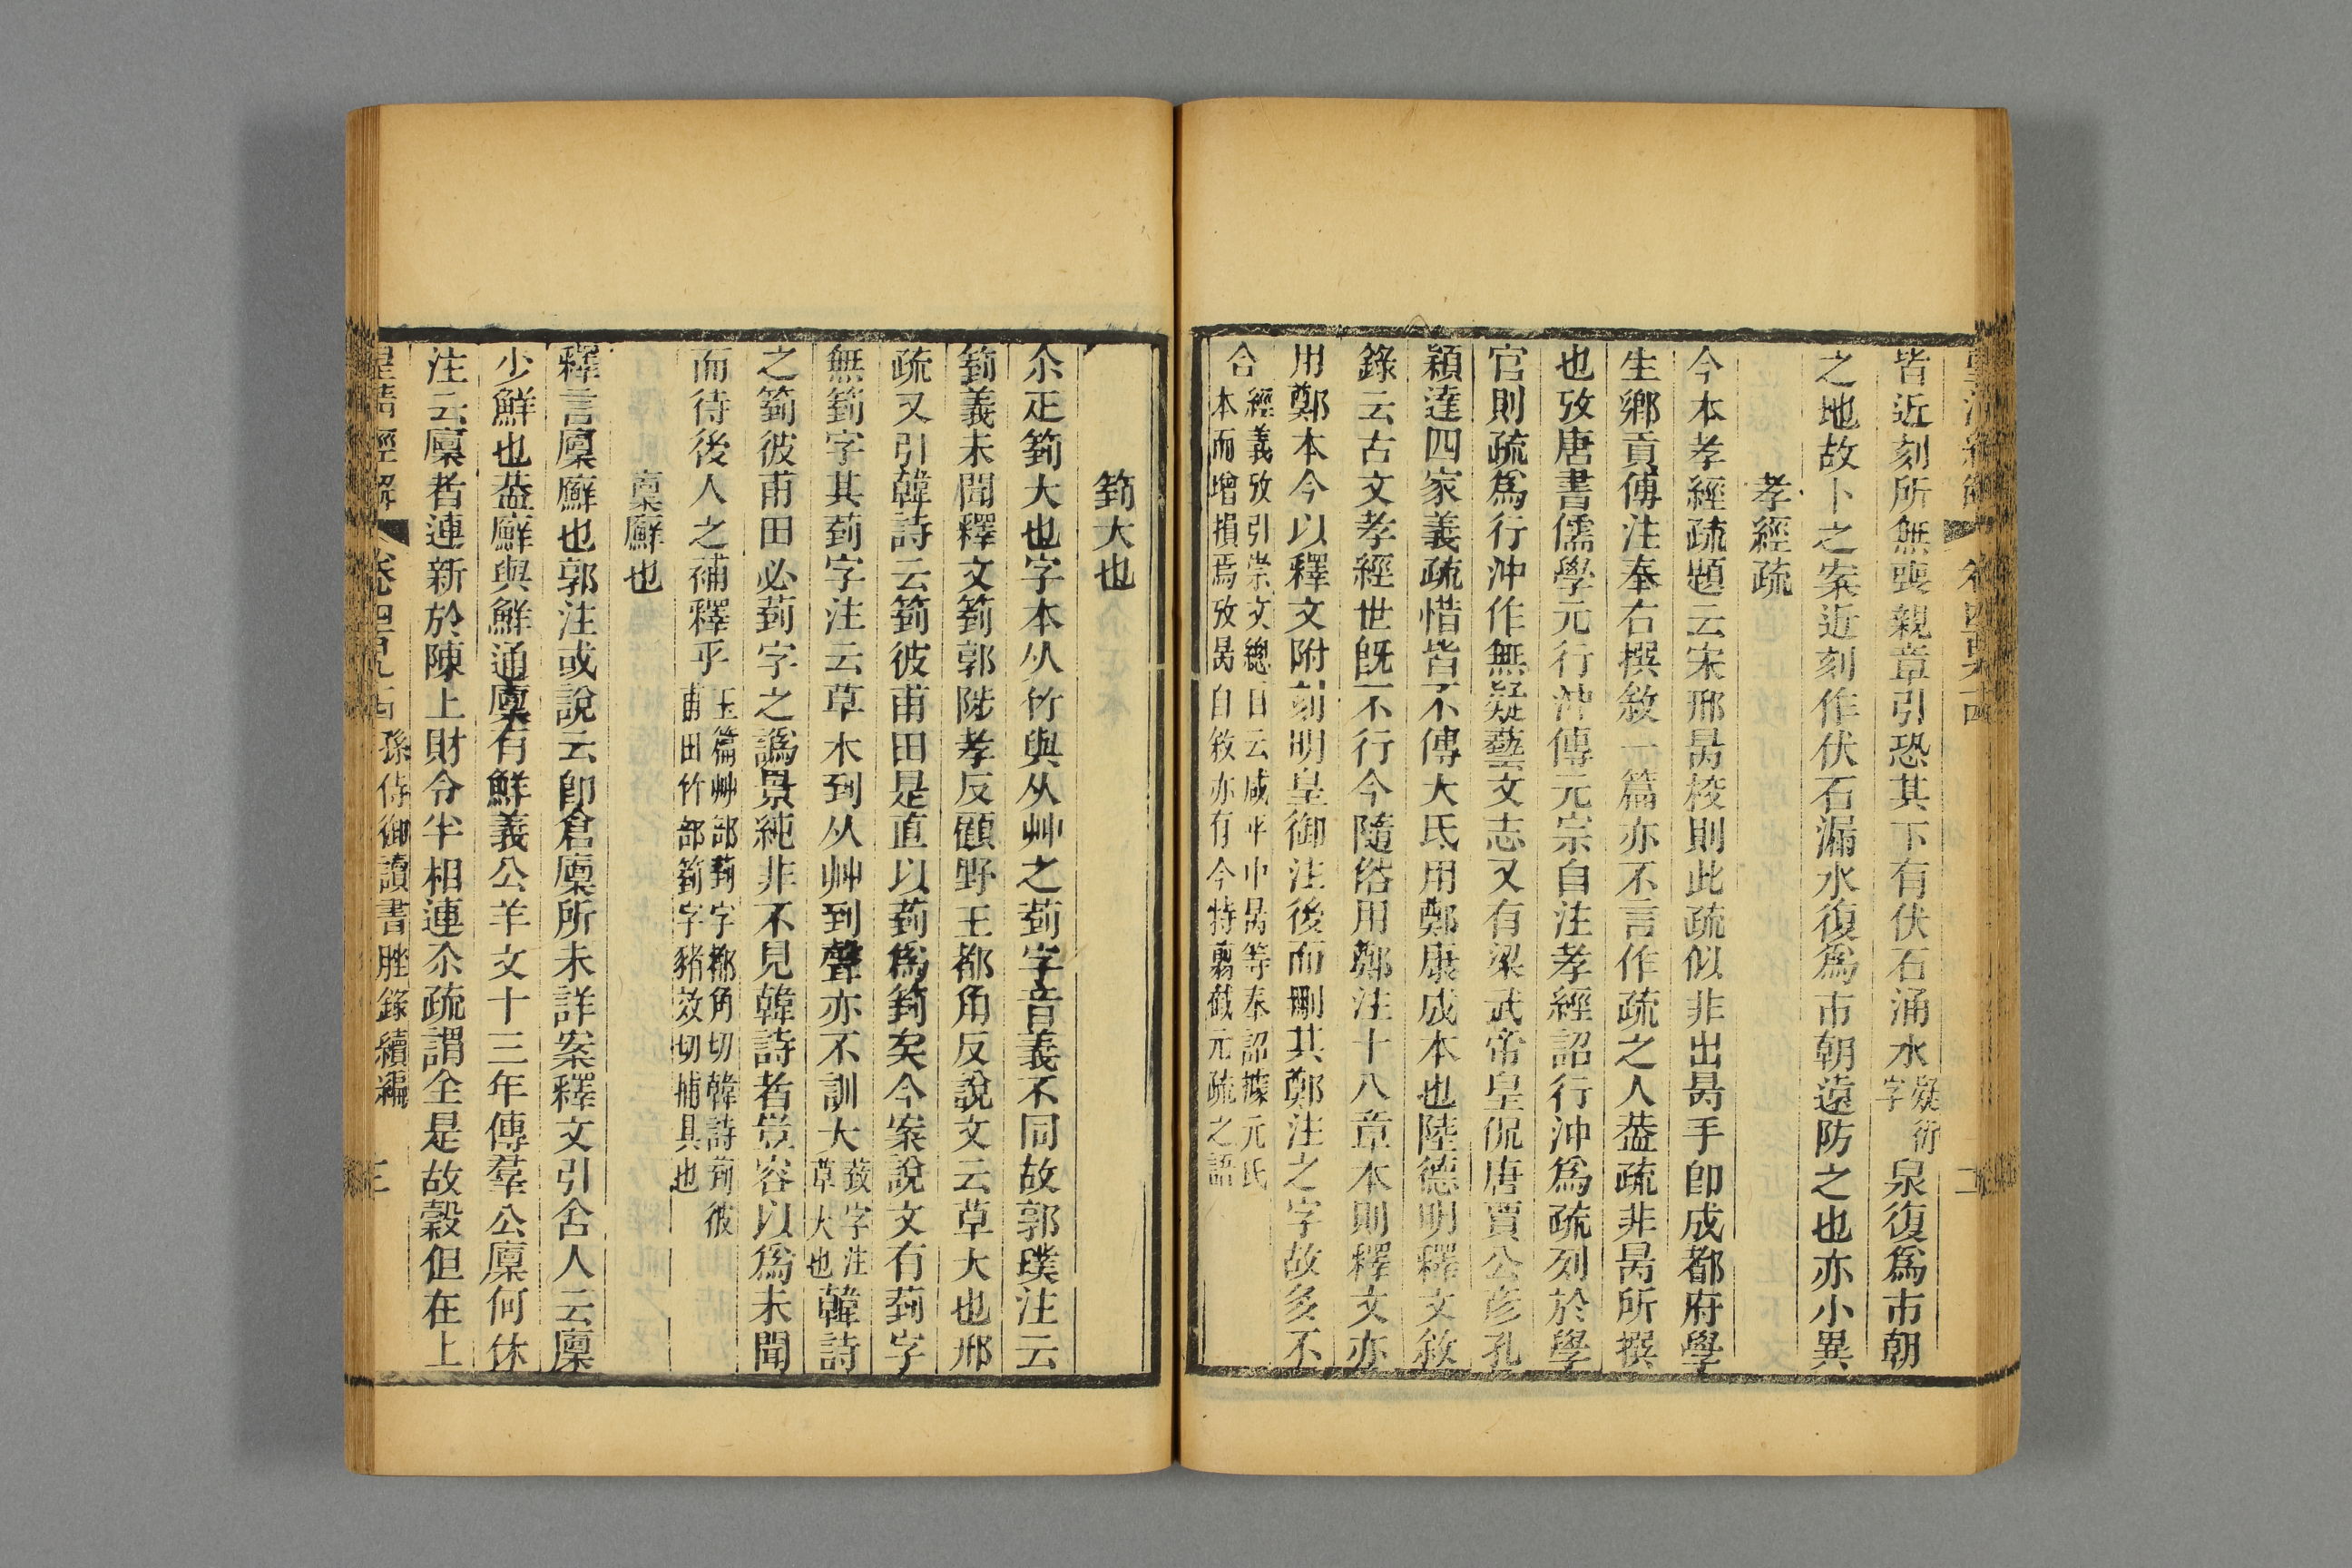 皆近刻所無喪親章引恐其下有伏石涌水疑衍字泉復爲市朝
之地故卜之案近刻作伏石漏水復爲市朝遠防之也亦小異
孝經疏
今本孝經疏題云宋邢昺校則此疏似非出昺手卽成都府學
生鄉貢傅注奉右撰敘一篇亦不言作疏之人葢疏非昺所撰
也攷唐書儒學元行沖傳元宗自注孝經詔行沖爲疏列於學
官則疏爲行沖作無疑藝文志又有梁武帝皇侃唐賈公彥孔
穎達四家義疏惜皆不傳大氐用鄭康成本也陸德明釋文敘
錄云古文孝經世旣不行今隨俗用鄭注十八章本則釋文亦
用鄭本今以釋文附刻明皇御注後而刪其鄭注之字故多不
合經義攷引崇文總目云咸平中昺等奉詔據元氏本而增損焉攷昺自敘亦有今特翦截元疏之語
箌大也
尒疋箌大也字本从竹與从艸之菿字音義不同故郭璞注云
箌義未聞釋文箌郭陟孝反顧野王都角反說文云草大也邢
疏又引韓詩云箌彼甫田是直以菿爲箌矣今案說文有菿字
無箌字其菿字注云草木到从艸到聲亦不訓大菿字注草大也韓詩
之箌彼甫田必菿字之譌景純非不見韓詩者豈容以爲未聞
而待後人之補釋乎玉篇艸部菿字都角切韓詩菿彼甫田竹部箌字豬效切捕具也
稟廯也
釋言廩廯也郭注或說云卽倉廩所未詳案釋文引舍人云廩
少鮮也葢廯與鮮通廩有鮮義公羊文十三年傳羣公廩何休
注云廩者連新於陳上財令半相連尒疏謂全是故穀但在上
皇清經解 卷四百九十四 孫侍御讀書脞錄續編 三